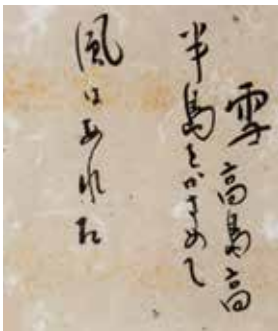 雪 高島高
半島をかすめて
風はあれた